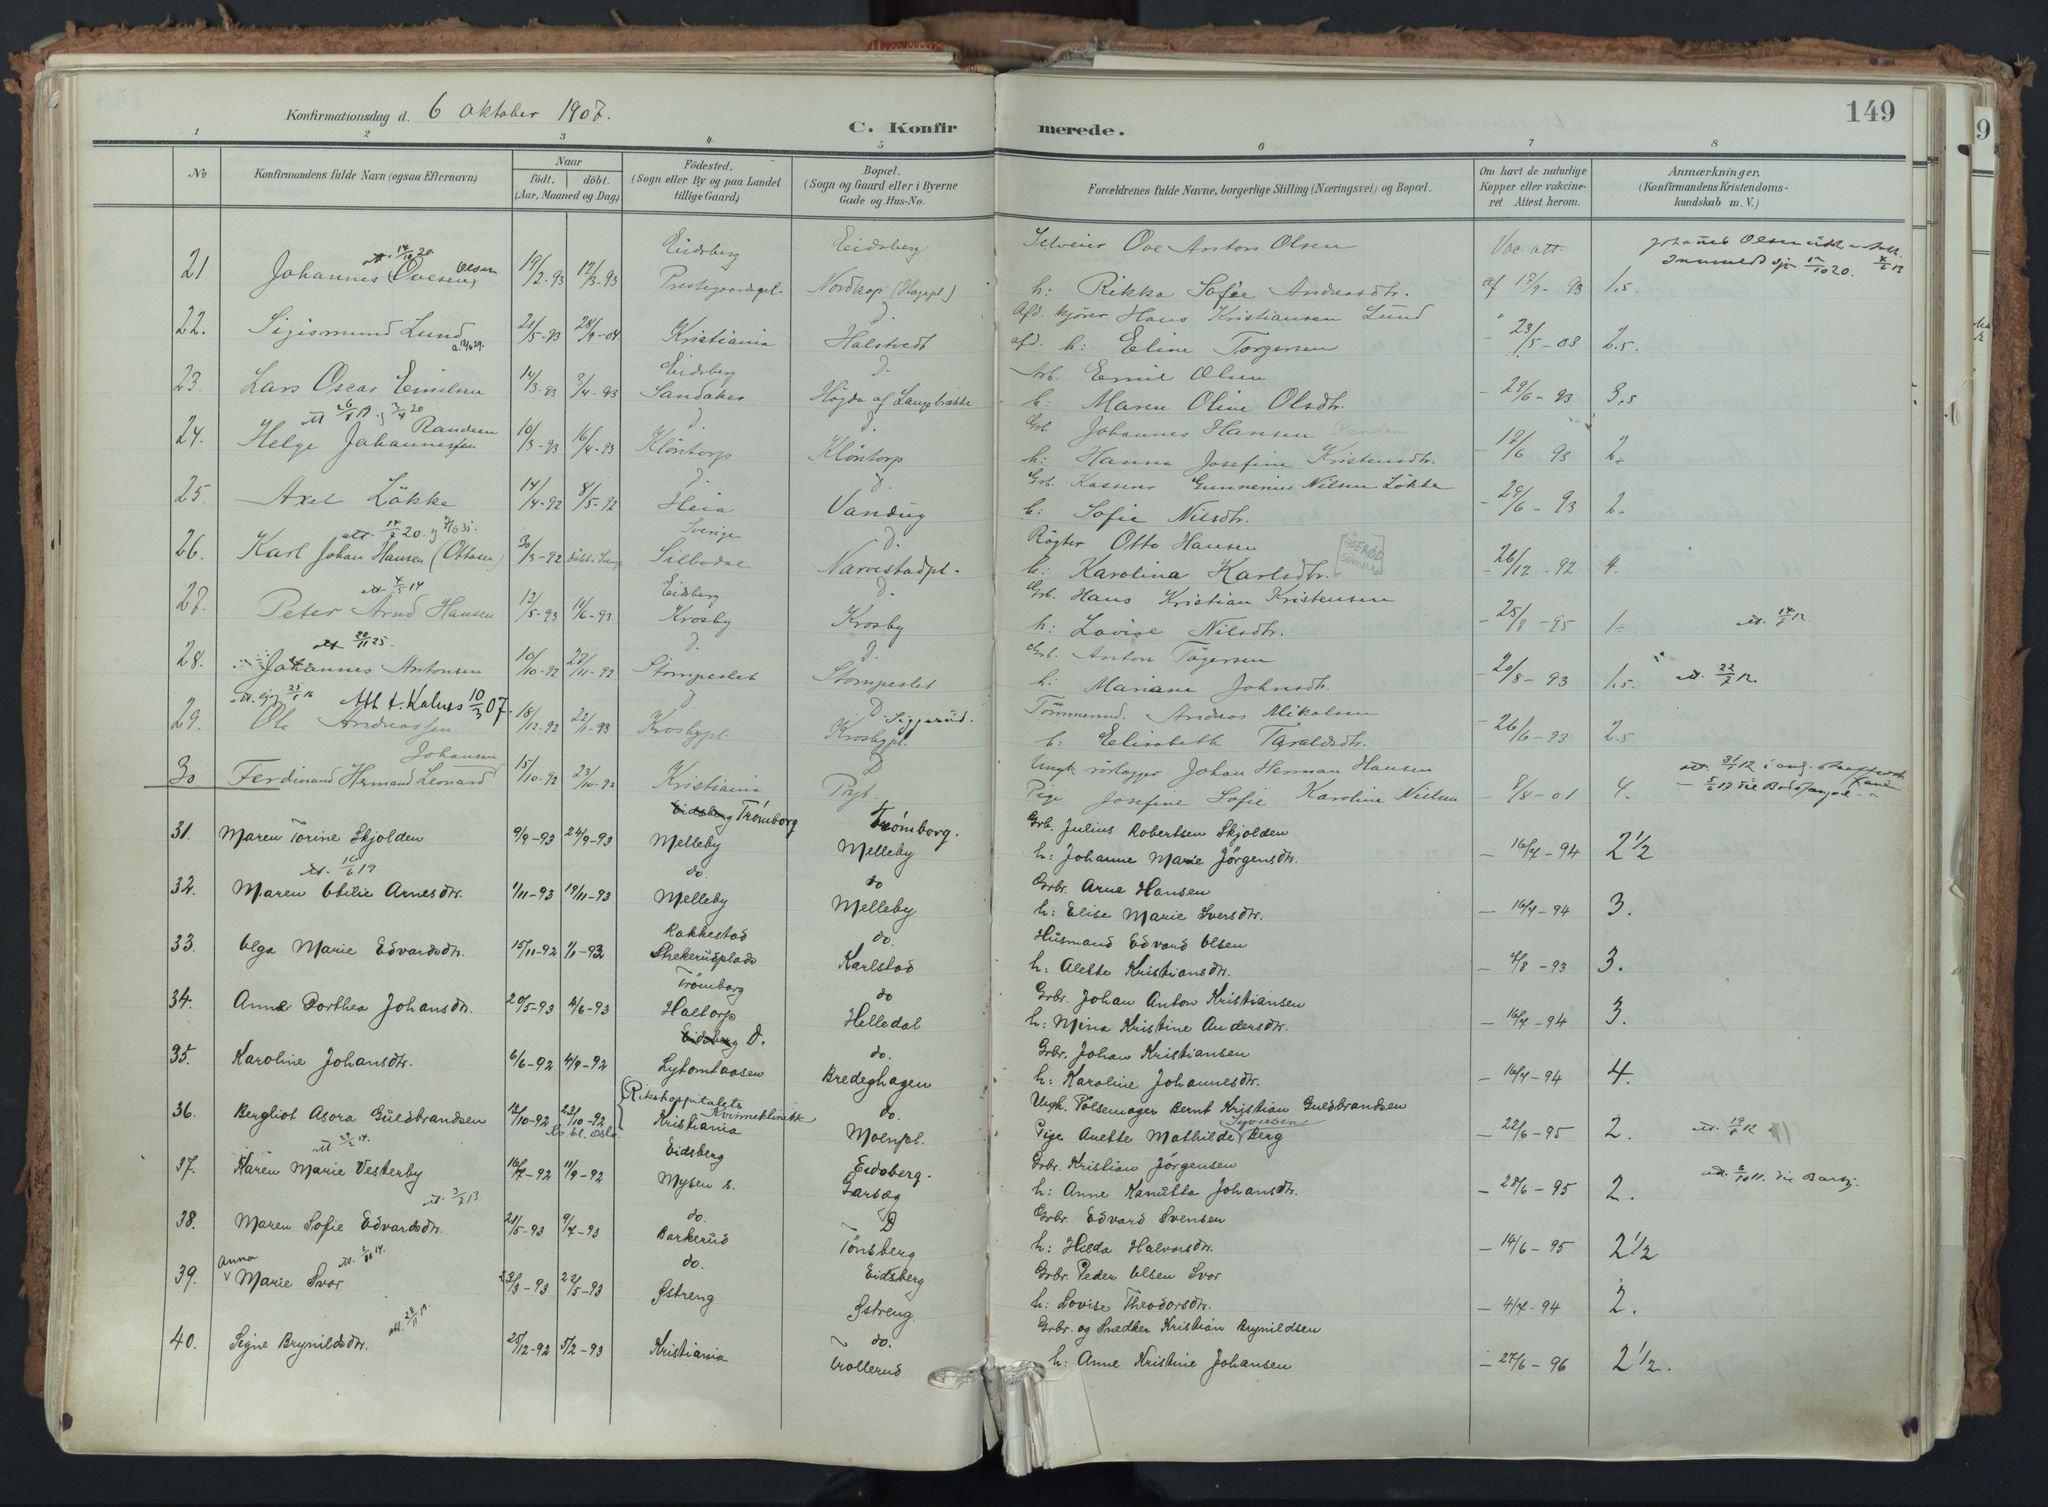 Konfirmationsdag d. 6 Oktober 1907.
C. Konfirmerede.
149
1 2 3 4 5 6 7 8
No
Konfirmandens fulde Navn (ogsaa Efternavn)
Naar
födt. döbt.
(Aar, Maaned og Dag)
Födested.
(Sogn eller By og paa Landet
tillige Gaard)
Bopæl.
(Sogn og Gaard eller i Byerne
Gade og Hus-No.
Forældrenes fulde Navne, borgerlige Stilling (Næringsvei) og Bopæl.
Om havt de naturlige
Kopper eller vakcine-
ret Attest herom.
Anmærkninger,
(Konfirmandens Kristendoms-
kundskab m. V.)
att. 14/10 20 Eidsberg Eidsberg Ove Anton Olsen Vac. att.
21 Johannes Ovesen Olsen 19/2-93 12/3-93 Nordkop h: Rikka Sofie Andreasdtr. af 17/9-93 1,5
D. Afd. kjörer Hans Kristiansen Lund
22. Sigismund Lund 21/5-93 28/9-04 Kristiania Halstvedt afd. h: Eline Torgersen " 23/5-08 2,5.
Eidsberg D. Arb. Emil Olsen
23. Lars Oscar Emilsen 14/3-93 3/4-93 Sandaker Högda af Langbrække h: Maren Oline Olsdtr. - 29/6-93 3,5
D. D. Grb. Johannes Hansen
24. Helge Johannessen Randem 10/3-93 16/4-93 Klöntorp Klöntorp h: Hanna Josefine Kristensdtr. - 17/6-93 2-
D. D. Grb. Kasserer Gunnerius Nilsen Lökke
25 Axel Lökke 14/4-92 8/5-92 Heia Vandug h: Sofie Nilsdtr. - 29/6-93 2-
Sverige D. Rögter Otto Hansen
26. Karl Johan Hansen (Ottosen) 30/3-92 Silbodal Narvestadpl. h: Karolina Karlsdtr. - 26/12-92 4.
att. 4/5 14 Eidsberg D. Grb. Hans Kristian Kristensen
27. Peter Arnd Hansen 12/5-93 11/6-93 Krosby Krosby h: Lovise Nilsdtr. - 25/8-95 1-
att. 20/11 25. D. D. Grb. Anton Tögersen
28. Johannes Antonsen 10/10-92 22/11-92 Stompeslet Stompeslet h: Mariane Johnsdtr. - 20/8-93 1,5. att. 22/7 12.
Att. t. Kalnes 10/3 07. D. D. Siggerud. Tömmermd. Andreas Mikalsen
29. Ole Andreassen 18/12-92 22/1-93 Krosbypl. Krosbypl. h: Elisabeth Taraldsdtr. - 26/6-93 2.5
Johansen D Ungk. rörlægger Johan Herman Hansen
30 Ferdinand Hermand Leonard 15/10-92 23/10-92 Kristiania Pryt Pige Josefine Sofie Karoline Nielsen - 8/8-01 4.
Eidsberg Trömborg Trömborg. Grb. Julius Robertsen Skjolden
31. Maren Torine Skjolden 9/9-93 24/9-93 Melleby Melleby h: Johanne Marie Jörgensdtr. - 16/7-94 2 1/2
att. 16/6 19. do. do Grbr. Arne Hansen
32. Maren Otilie Arnesdtr. 1/11-93 19/11-93 Melleby Melleby h: Elise Marie Sversdtr. - 16/7-94 3.
Rakkestad do. Husmand Edvard Olsen
33. Olga Marie Edvardsdtr. 15/11-92 1/1-93 Karlstad h: Alette Kristiansdtr. - 4/8-93 3.
Trömborg do Grbr. Johan Anton Kristiansen
34. Anne Dorthea Johansdtr. 20/5-93 4/6-93 Haltorp Helledal h: Mina Kristine Andersdtr. - 16/7-94 3.
Eidsberg D. do. Grbr. Johan Kristiansen
35. Karoline Johansdtr. 6/6-92 4/9-92 Lytomtaasen Bredeghagen h: Karoline Johannesdtr. - 16/7-94 4.
Rikshospitalets Kvinneklinikk do. Ungk. Pölsemager Bernt Kristian Guldbrandsen
36. Bergliot Asora Guldbrandsen 12/10-92 23/10-92 Kristiania Moenpl. Pige Anette Mathilde Syversen Berg - 22/6-95 2. att. 19/6 12
Eidsberg Eidsberg. Grbr. Kristian Jörgensen
37. Karen Marie Vesterby 16/7-92 11/9-92 Mysen s. Garsæg h: Anne Kanutta Johansdtr. - 28/6-95 2.
att. 3/2 13 do. D Grbr. Edvard Svensen
38. Maren Sofie Edvardsdtr. 21/5-93 9/7-93 Barkerud Tönsberg h: Hilda Halvorsdtr. - 14/6-95 2 1/2
Anna do. Eidsberg Grbr. Peder Olsen Svor
39. Marie Svor 23/3-93 22/5-93 Østreng Østreng h: Lovise Theodorsdtr. - 4/7-94 2.
do. Grbr. og Snedker Kristian Brynildsen
40. Signe Brynildsdtr. 25/12-92 5/2-93 Kristiania Trollerud h: Anne Kristine Johansen - 27/6-96 2 1/2.